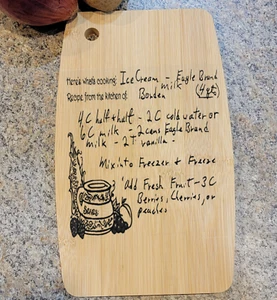 Here's what's cooking: Ice Cream - Eagle Brand
Milk (4 qts)
Recipe from the kitchen of Borden
4C half & half - 2C cold water or
6C milk - 2 cans Eagle Brand
milk - 2T vanilla -
Mix into Freezer & Freeze
*add Fresh Fruit - 3C
Berries, Cherries, or
peaches